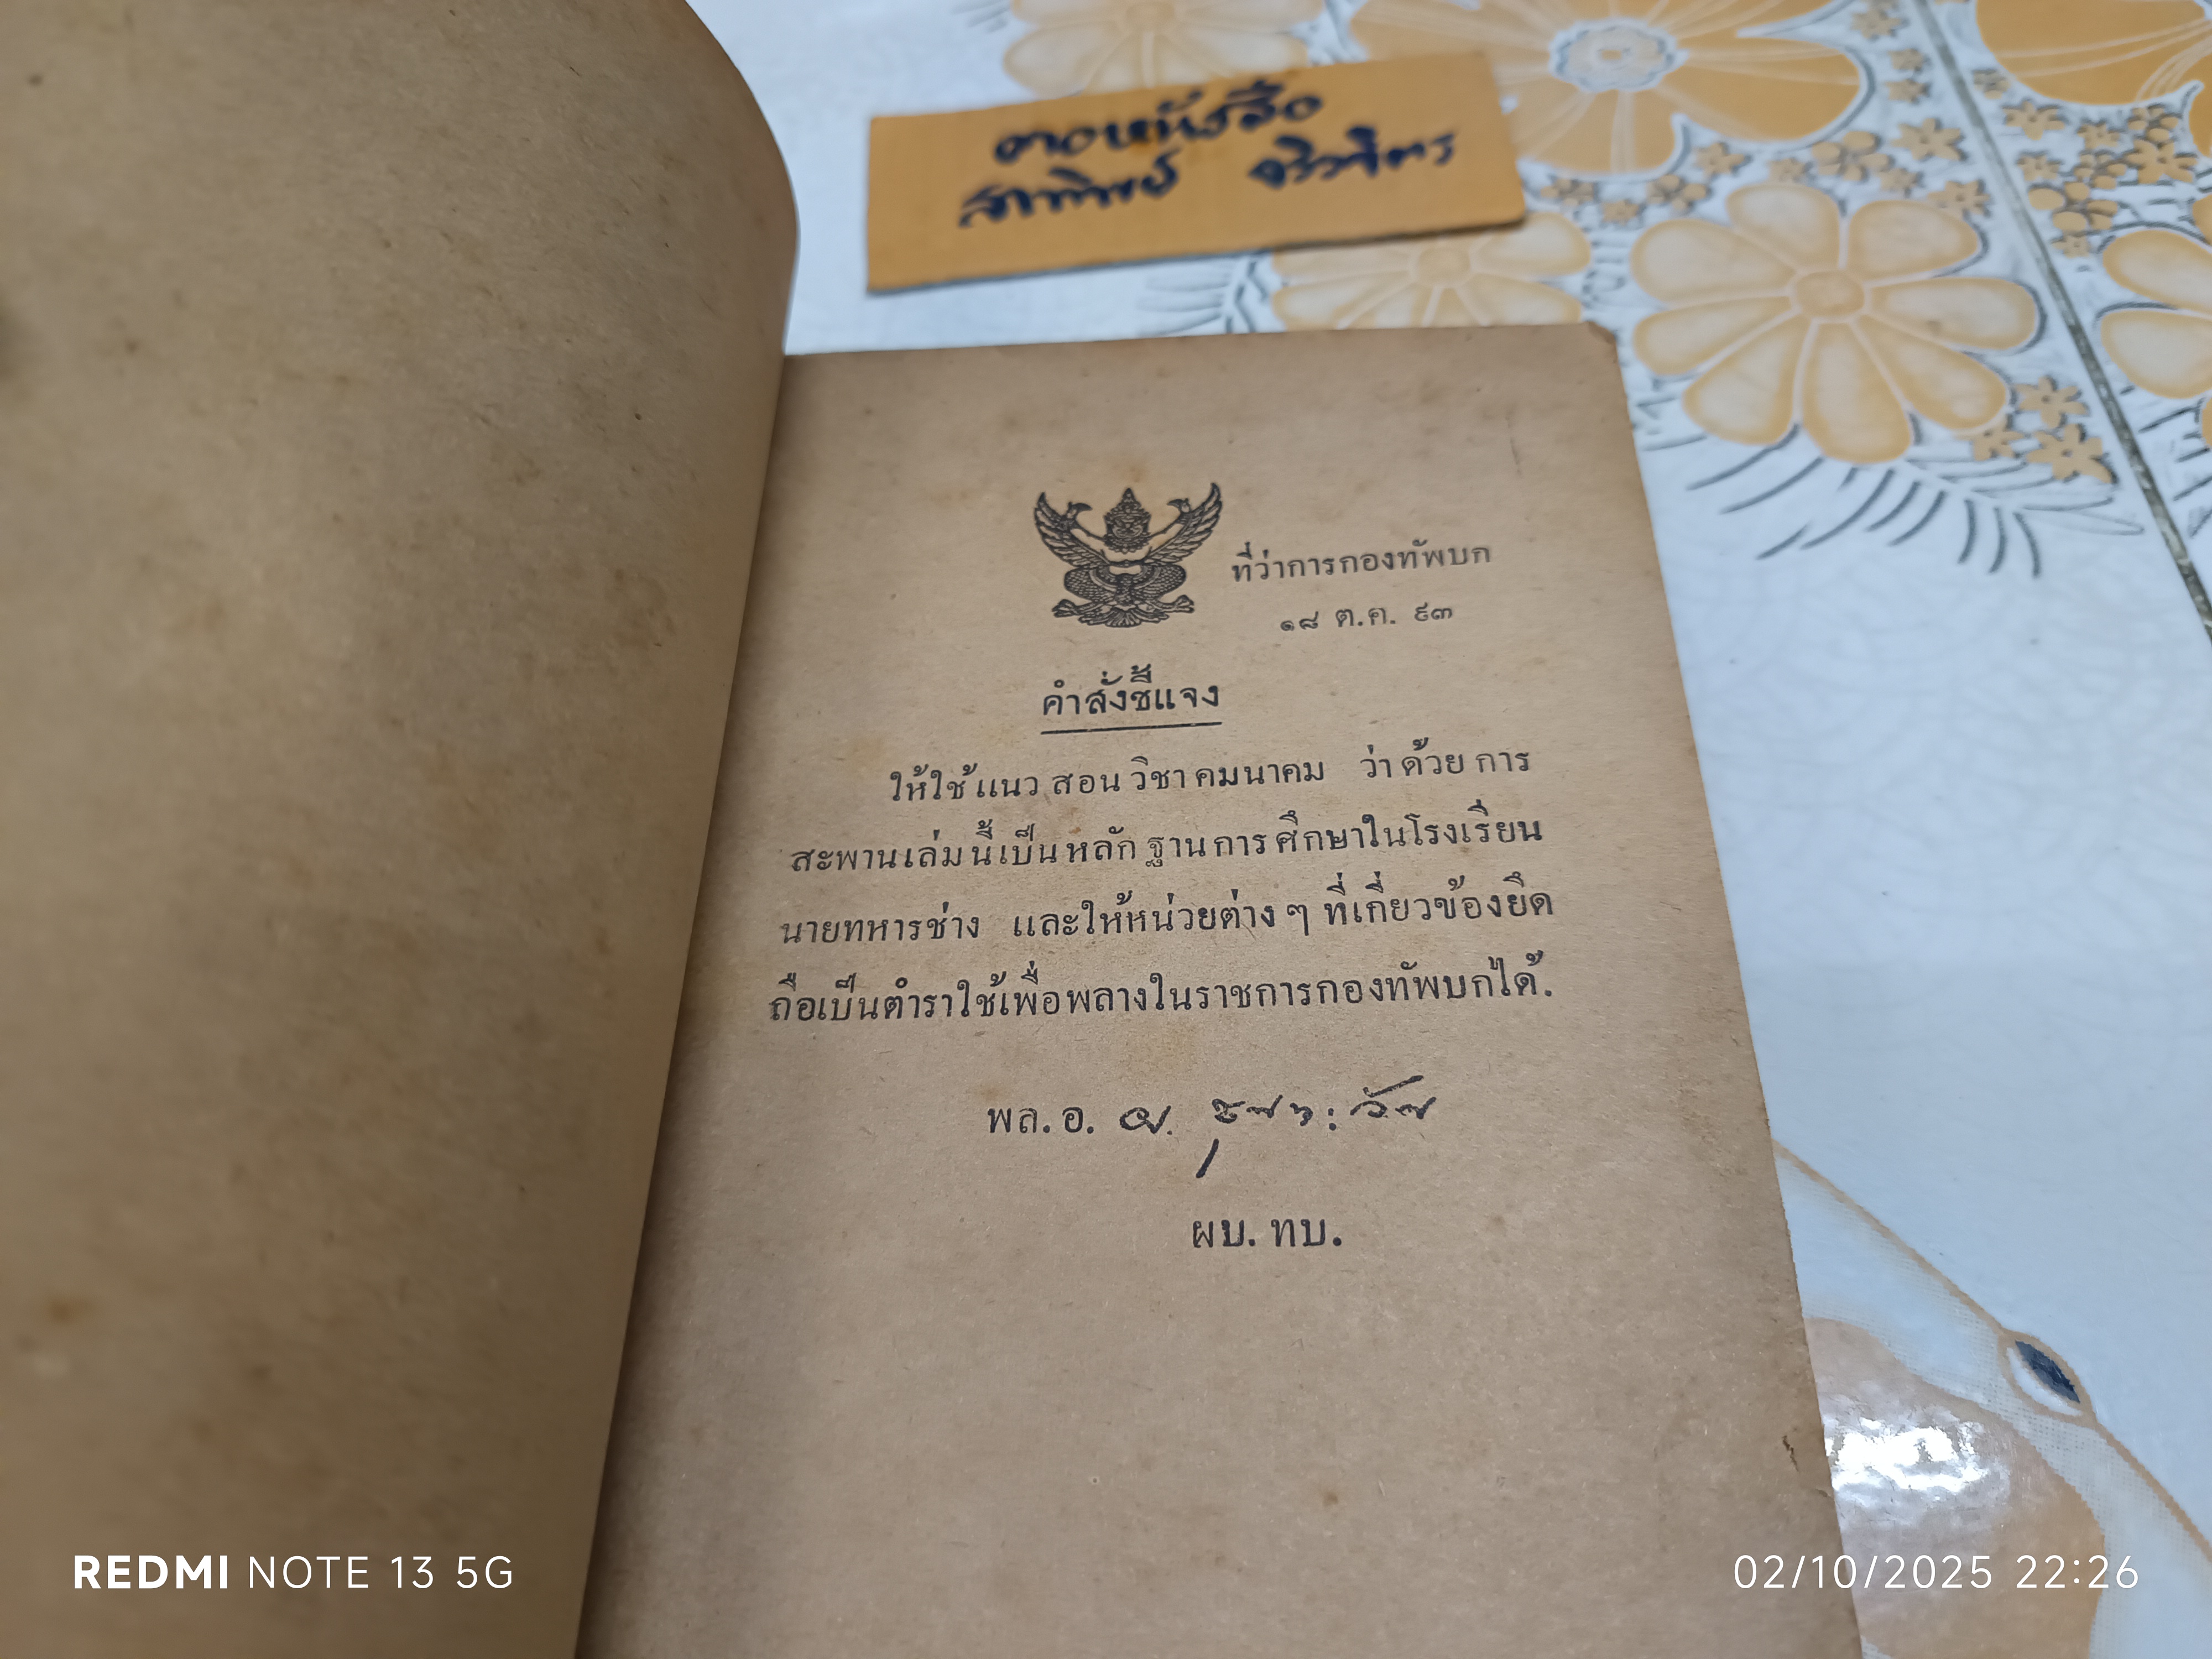 ตอหนังสือ
ที่ว่าการกองทัพบก
๑๘ ต.ค. ๙๓
คำสั่งชี้แจง
ให้ใช้แนวสอนวิชาคมนาคม ว่าด้วยการ
สะพานเล่มนี้เป็นหลักฐานการศึกษาในโรงเรียน
นายทหารช่าง และให้หน่วยต่าง ๆ ที่เกี่ยวข้องยึด
ถือเป็นตำราใช้เพื่อพลางในราชการกองทัพบกได้.
พล.อ.
ผบ. ทบ.
REDMI NOTE 13 5G
02/10/2025 22:26